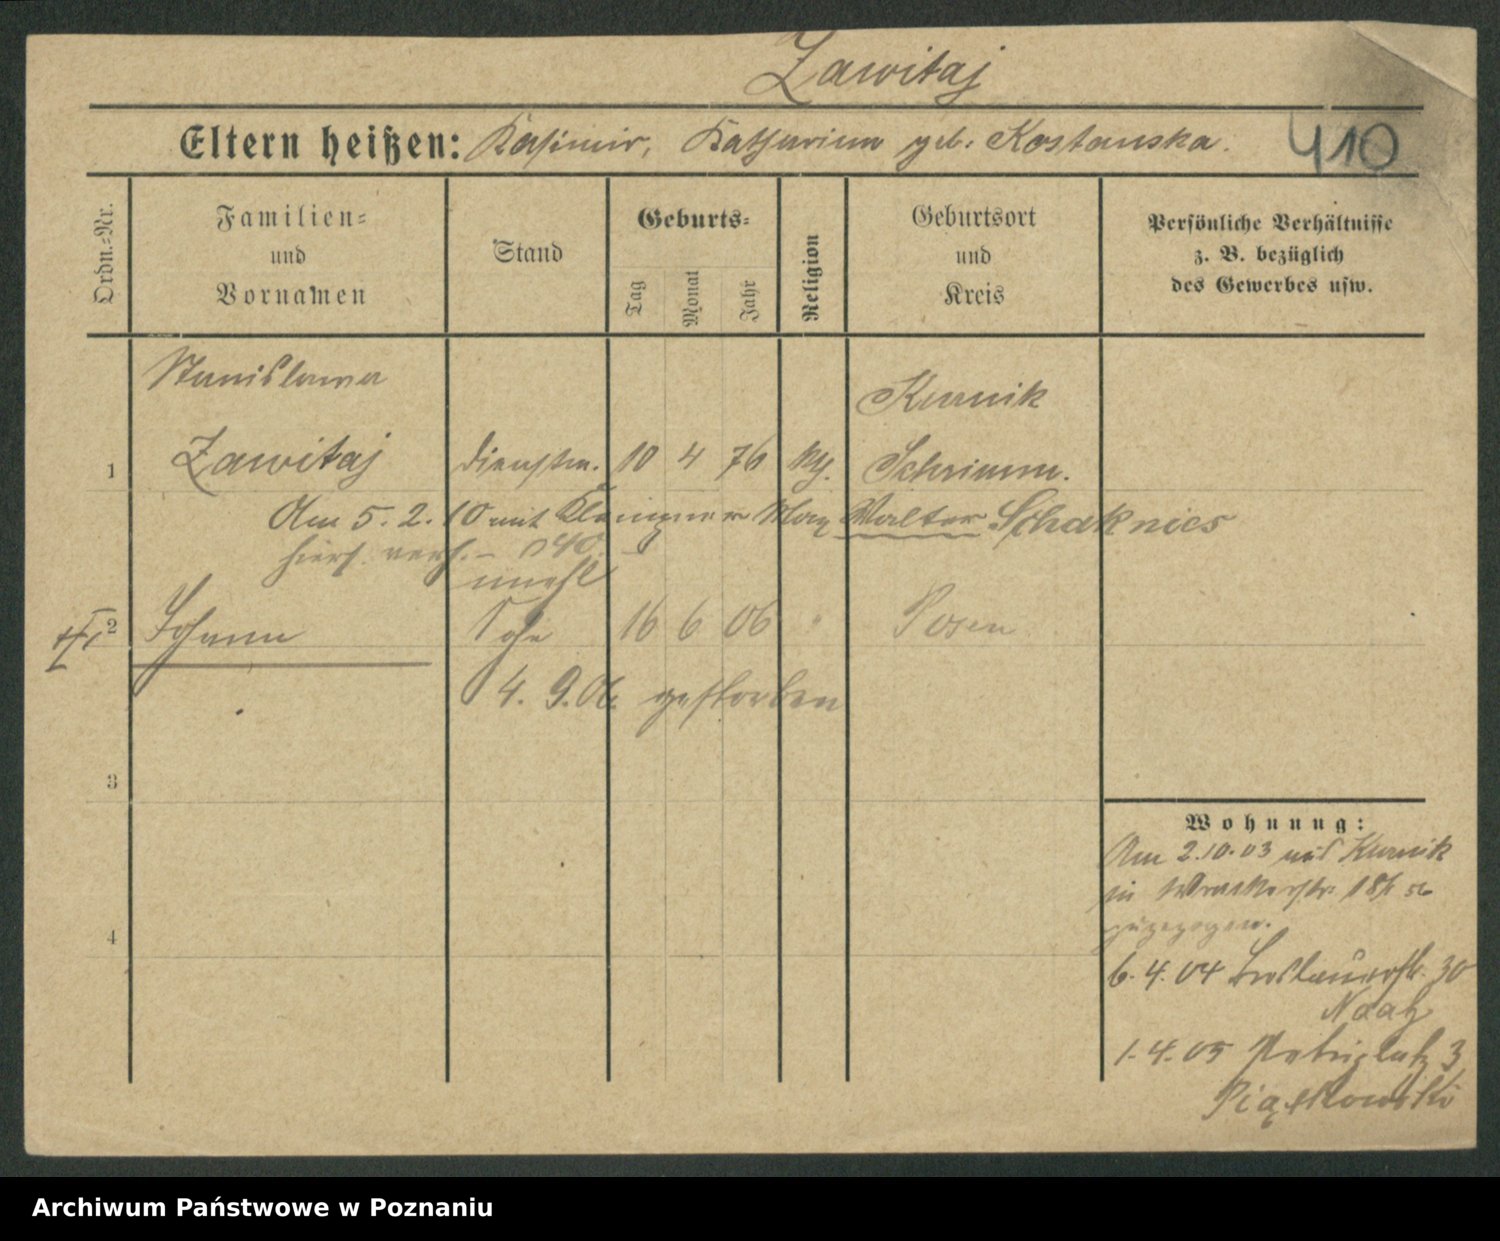 Zawitaj
Eltern heißen: Kasimir, Katharina geb. Kostanska.
410
Ordn.=Nr.
Familien=
und
Vornamen
Stand
Geburts=
Tag
Monat
Jahr
Religion
Geburtsort
und
Kreis
Persönliche Verhältnisse
z. B. bezüglich
des Gewerbes usw.
Stanislawa
Kurnik
1 Zawitaj Dienstm. 10 4 76 Schrimm.
Am 5. 2. 10 mit Klempner Max Walter Schaknies
hiers. verh. –
unehl
2 Johann Sohn 16 6 06 " Posen
4. 9. 06 gestorben
3
4
Wohnung:
Am 2.10.03 aus Kurnik
in 18
zugezogen.
6. 4. 04 30
1. 4. 05 Petriplatz 3
Piątkowski
Archiwum Państwowe w Poznaniu